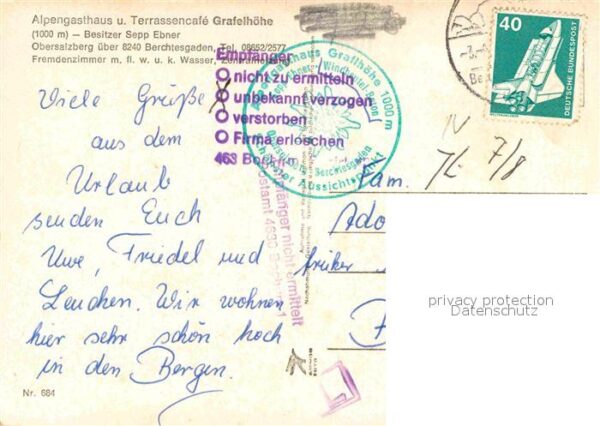 Alpengasthaus u. Terrassencafé Grafelhöhe
(1000 m) — Besitzer Sepp Ebner
Obersalzberg über 8240 Berchtesgaden, Tel. 08652/2577
Fremdenzimmer m. fl. w. u. k. Wasser,
Viele Grüße
aus dem
Urlaub
senden Euch
Uwe, Friedel und
Lenchen. Wir wohnen
hier sehr schön hoch
in den Bergen.
Nr. 684
Empfänger
nicht zu ermitteln
unbekannt verzogen
verstorben
Firma erloschen
463 Bochum
Grafihöhe 1000 m
Windbeutel Baron
Berchtesgaden
Aussichtspunkt
Empfänger nicht ermittelt
Postamt 4630 Bochum 1
40
DEUTSCHE BUNDESPOST
IV
7/8
Fam.
Ado
früher
privacy protection
Datenschutz